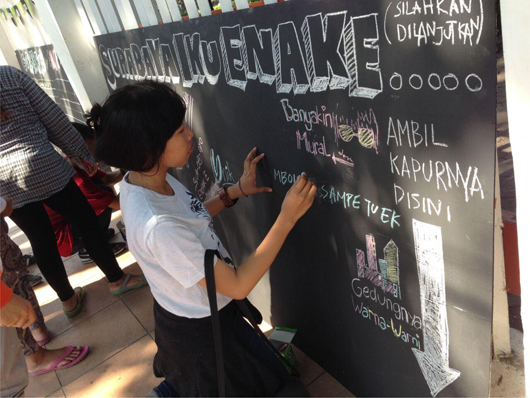 SURABAYA IKU ENAKE
(SILAHKAN
DILANJUTKAN)
Banyakin
Mural
AMBIL
KAPURNYA
DISINI
SAMPE TUEK
Gedungnya
Warna-Warni